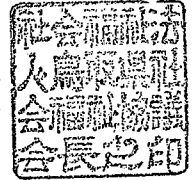 社会福祉法
人島根県社
会福祉協議
会長之印